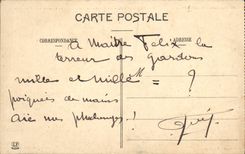 CARTE POSTALE
CORRESPONDANCE
ADRESSE
A Maître Felix la
terreur des
mille et mille = ?
poignées de mains
avec mes phalanges !